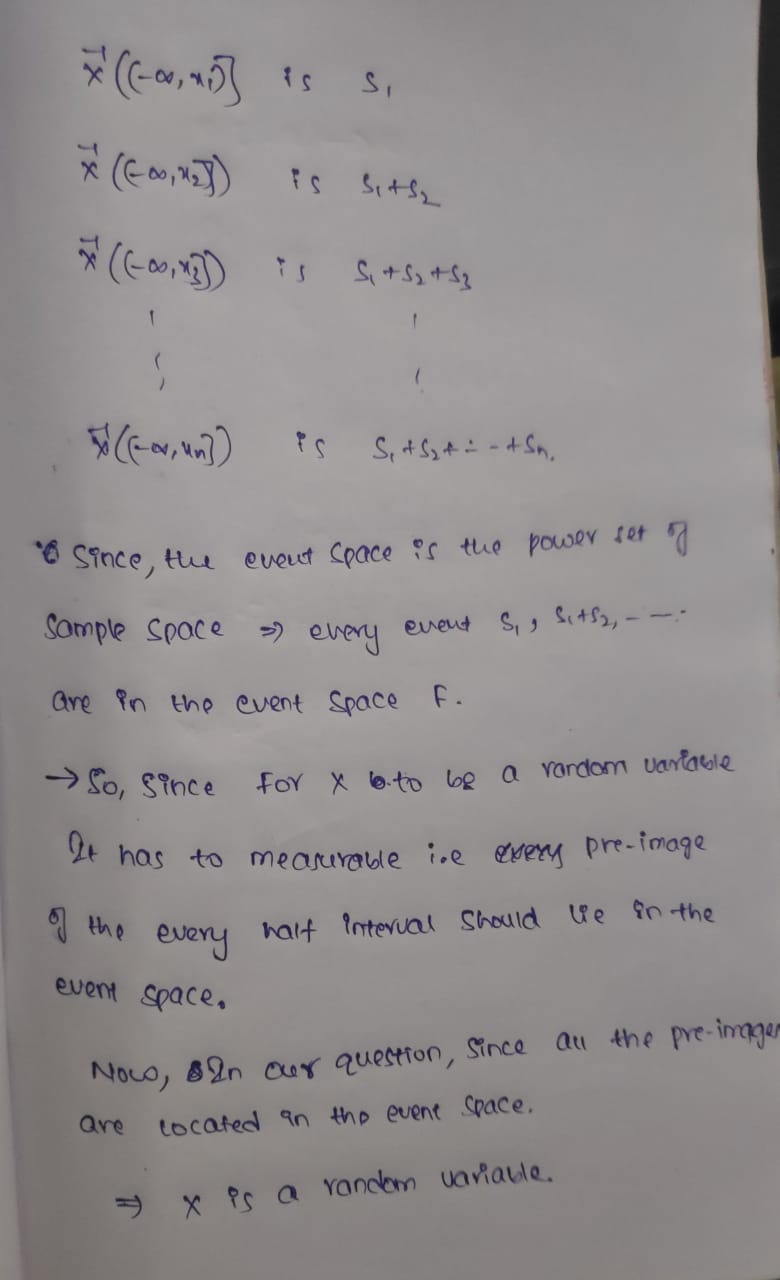 X⁻¹((-∞, x₁]) is S₁
X⁻¹((-∞, x₂]) is S₁+S₂
X⁻¹((-∞, x₃]) is S₁+S₂+S₃
X⁻¹((-∞, xₙ]) is S₁+S₂+---+Sₙ.
Since, the event space is the power set of
Sample space ⇒ every event S₁, S₁+S₂, ---
are in the event space F.
→ So, since for X to be a random variable
It has to measurable i.e every pre-image
of the every half interval should lie in the
event space.
Now, In our question, since all the pre-images
are located in the event space.
⇒ X is a random variable.